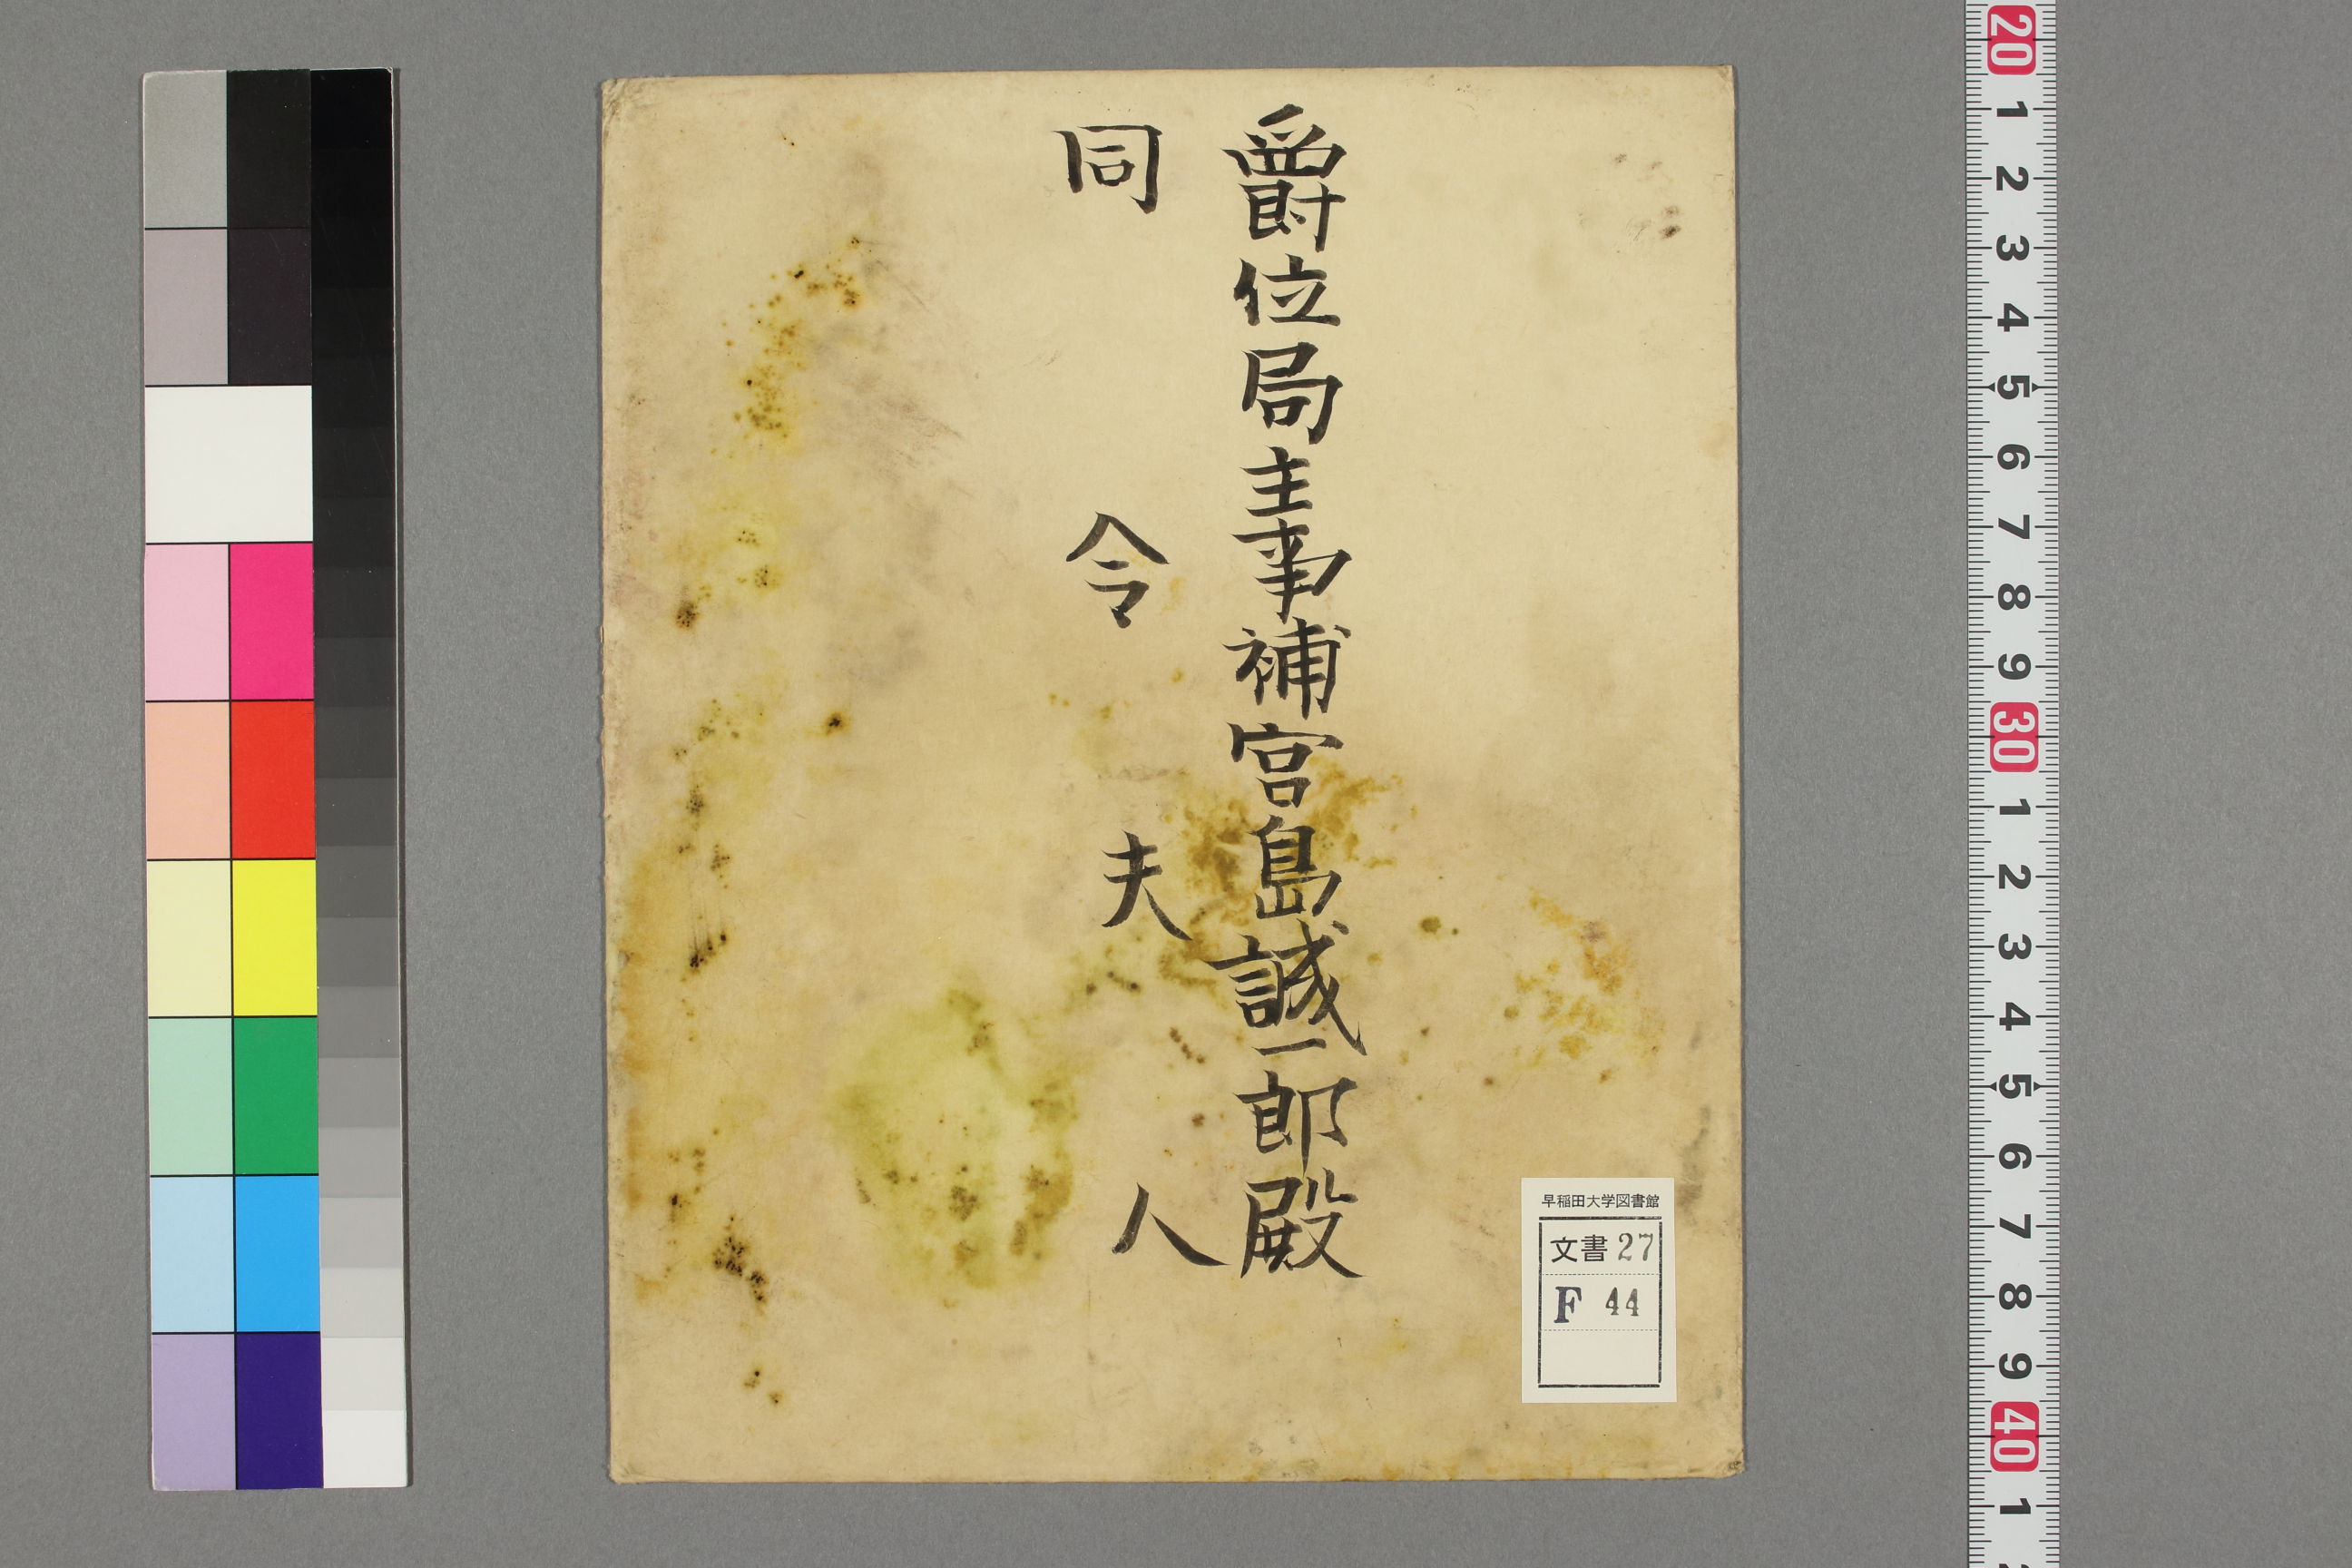 爵位局主事補宮島誠一郎殿
同令夫人
早稲田大学図書館
文書27
F 44
20 1 2 3 4 5 6 7 8 9 30 1 2 3 4 5 6 7 8 9 40 1